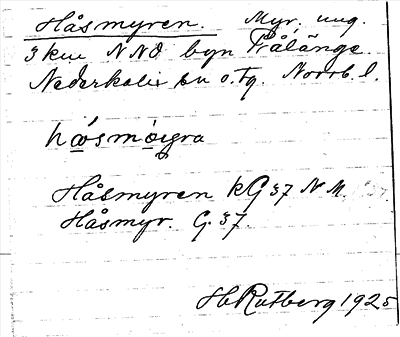 Håsmyren. Myr, ung.
3 km NNO byn Prålänge.
Nederkalix sn o. tg. Norrb. l.
Håsmyren kG 37 N.M.
Håsmyr. G. 37.
Hb Rutberg 1925